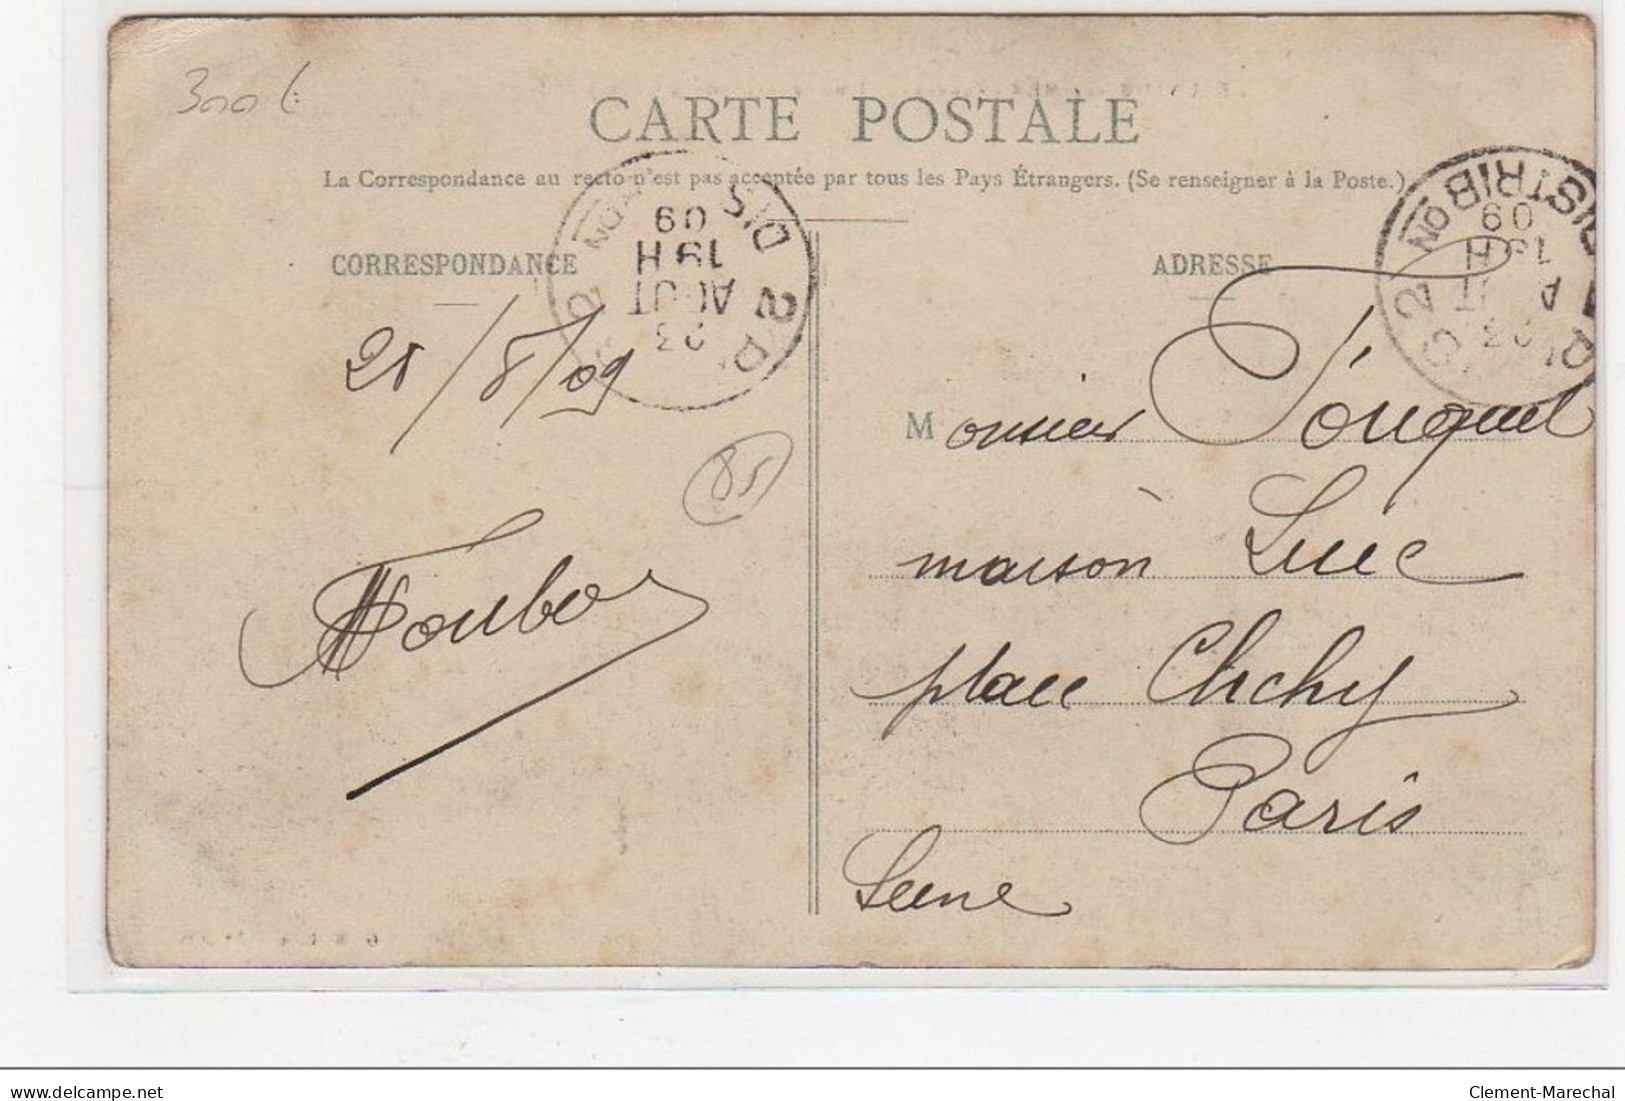 300 €
CARTE POSTALE
La Correspondance au recto n'est pas acceptée par tous les Pays Étrangers. (Se renseigner à la Poste.)
CORRESPONDANCE
ADRESSE
DISTRIBON
09
19 H
AOUT
23
DISTRIBON
09
19 H
23
21/8/09
85
Monsieur Fouquet
maison Luce
place Clichy
Paris
Seine
delcampe.net
Clement-Marechal